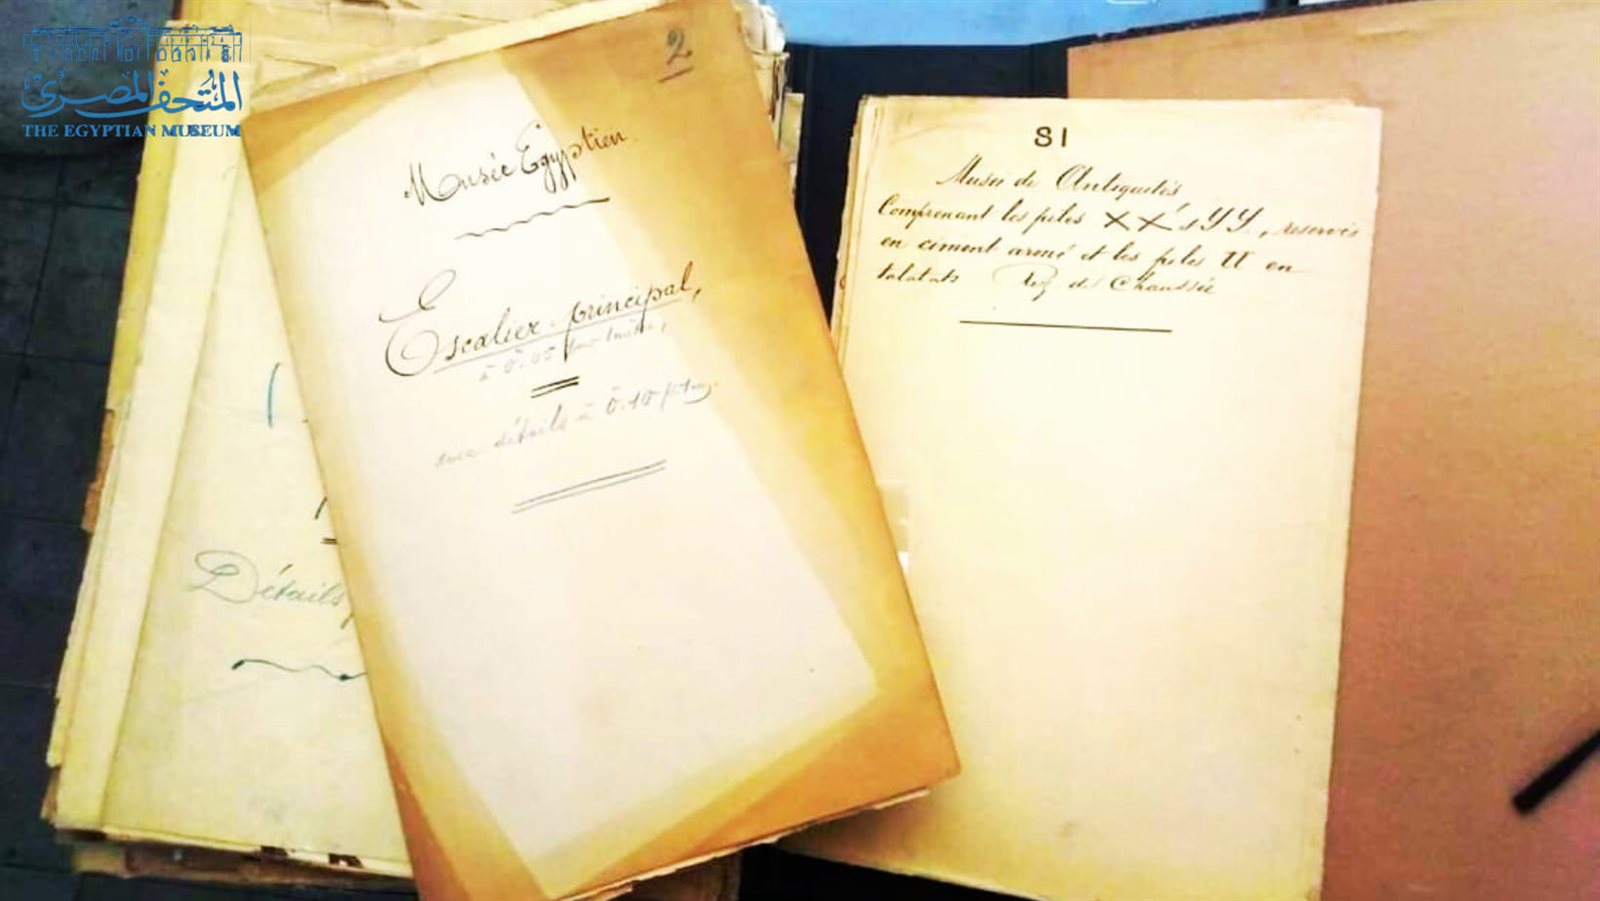 المتحف المصري
THE EGYPTIAN MUSEUM
2
Musée Egyptien.
Escalier principal,
à 0.05
avec détails à 0.10
Détails
S1
Musée de Antiquités
Comprenant les piles XX, YY, reservés
en ciment armé et les piles U en
talatats Rez de Chaussée